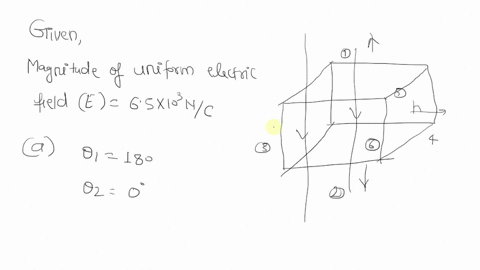 Given,
Magnitude of uniform electric
field (E) = 6.5×10³ N/C
(a) θ1 = 180
θ2 = 0°
①
n̂
⑤
n
③
⑥
4
②